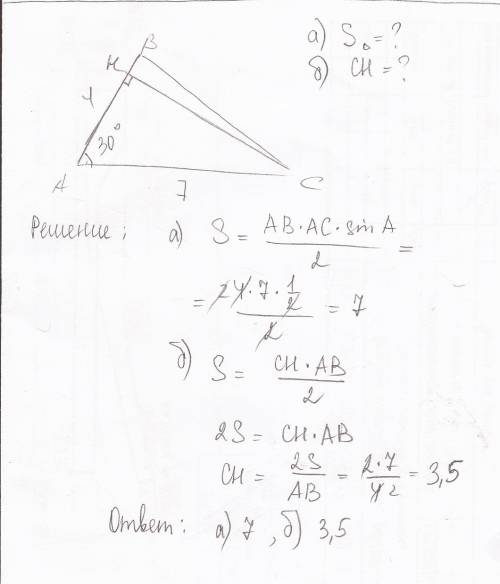 B
H
а) S△ = ?
б) CH = ?
4
30°
A
7
C
Решение: а) S = AB·AC·sin A / 2 =
= 4·7·1/2 / 2 = 7
б) S = CH·AB / 2
2S = CH·AB
CH = 2S / AB = 2·7 / 4 2 = 3,5
Ответ: а) 7, б) 3,5